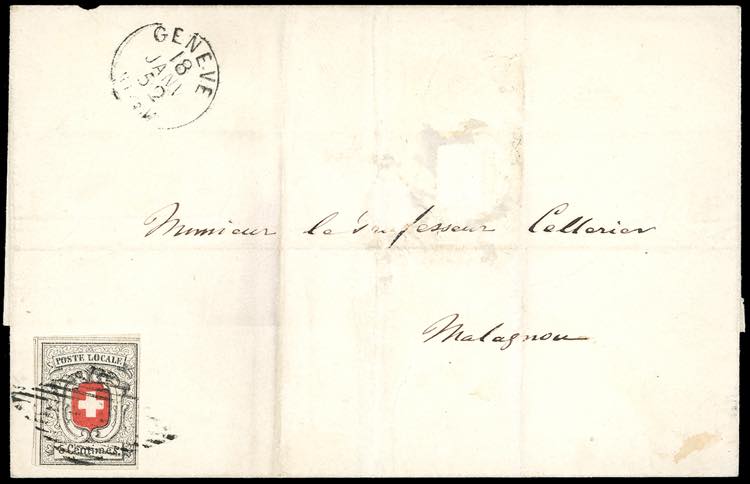 GENEVE
18
JANV
52
Monsieur le Professeur Cellerier
Malagnou
POSTE LOCALE
5 Centimes.